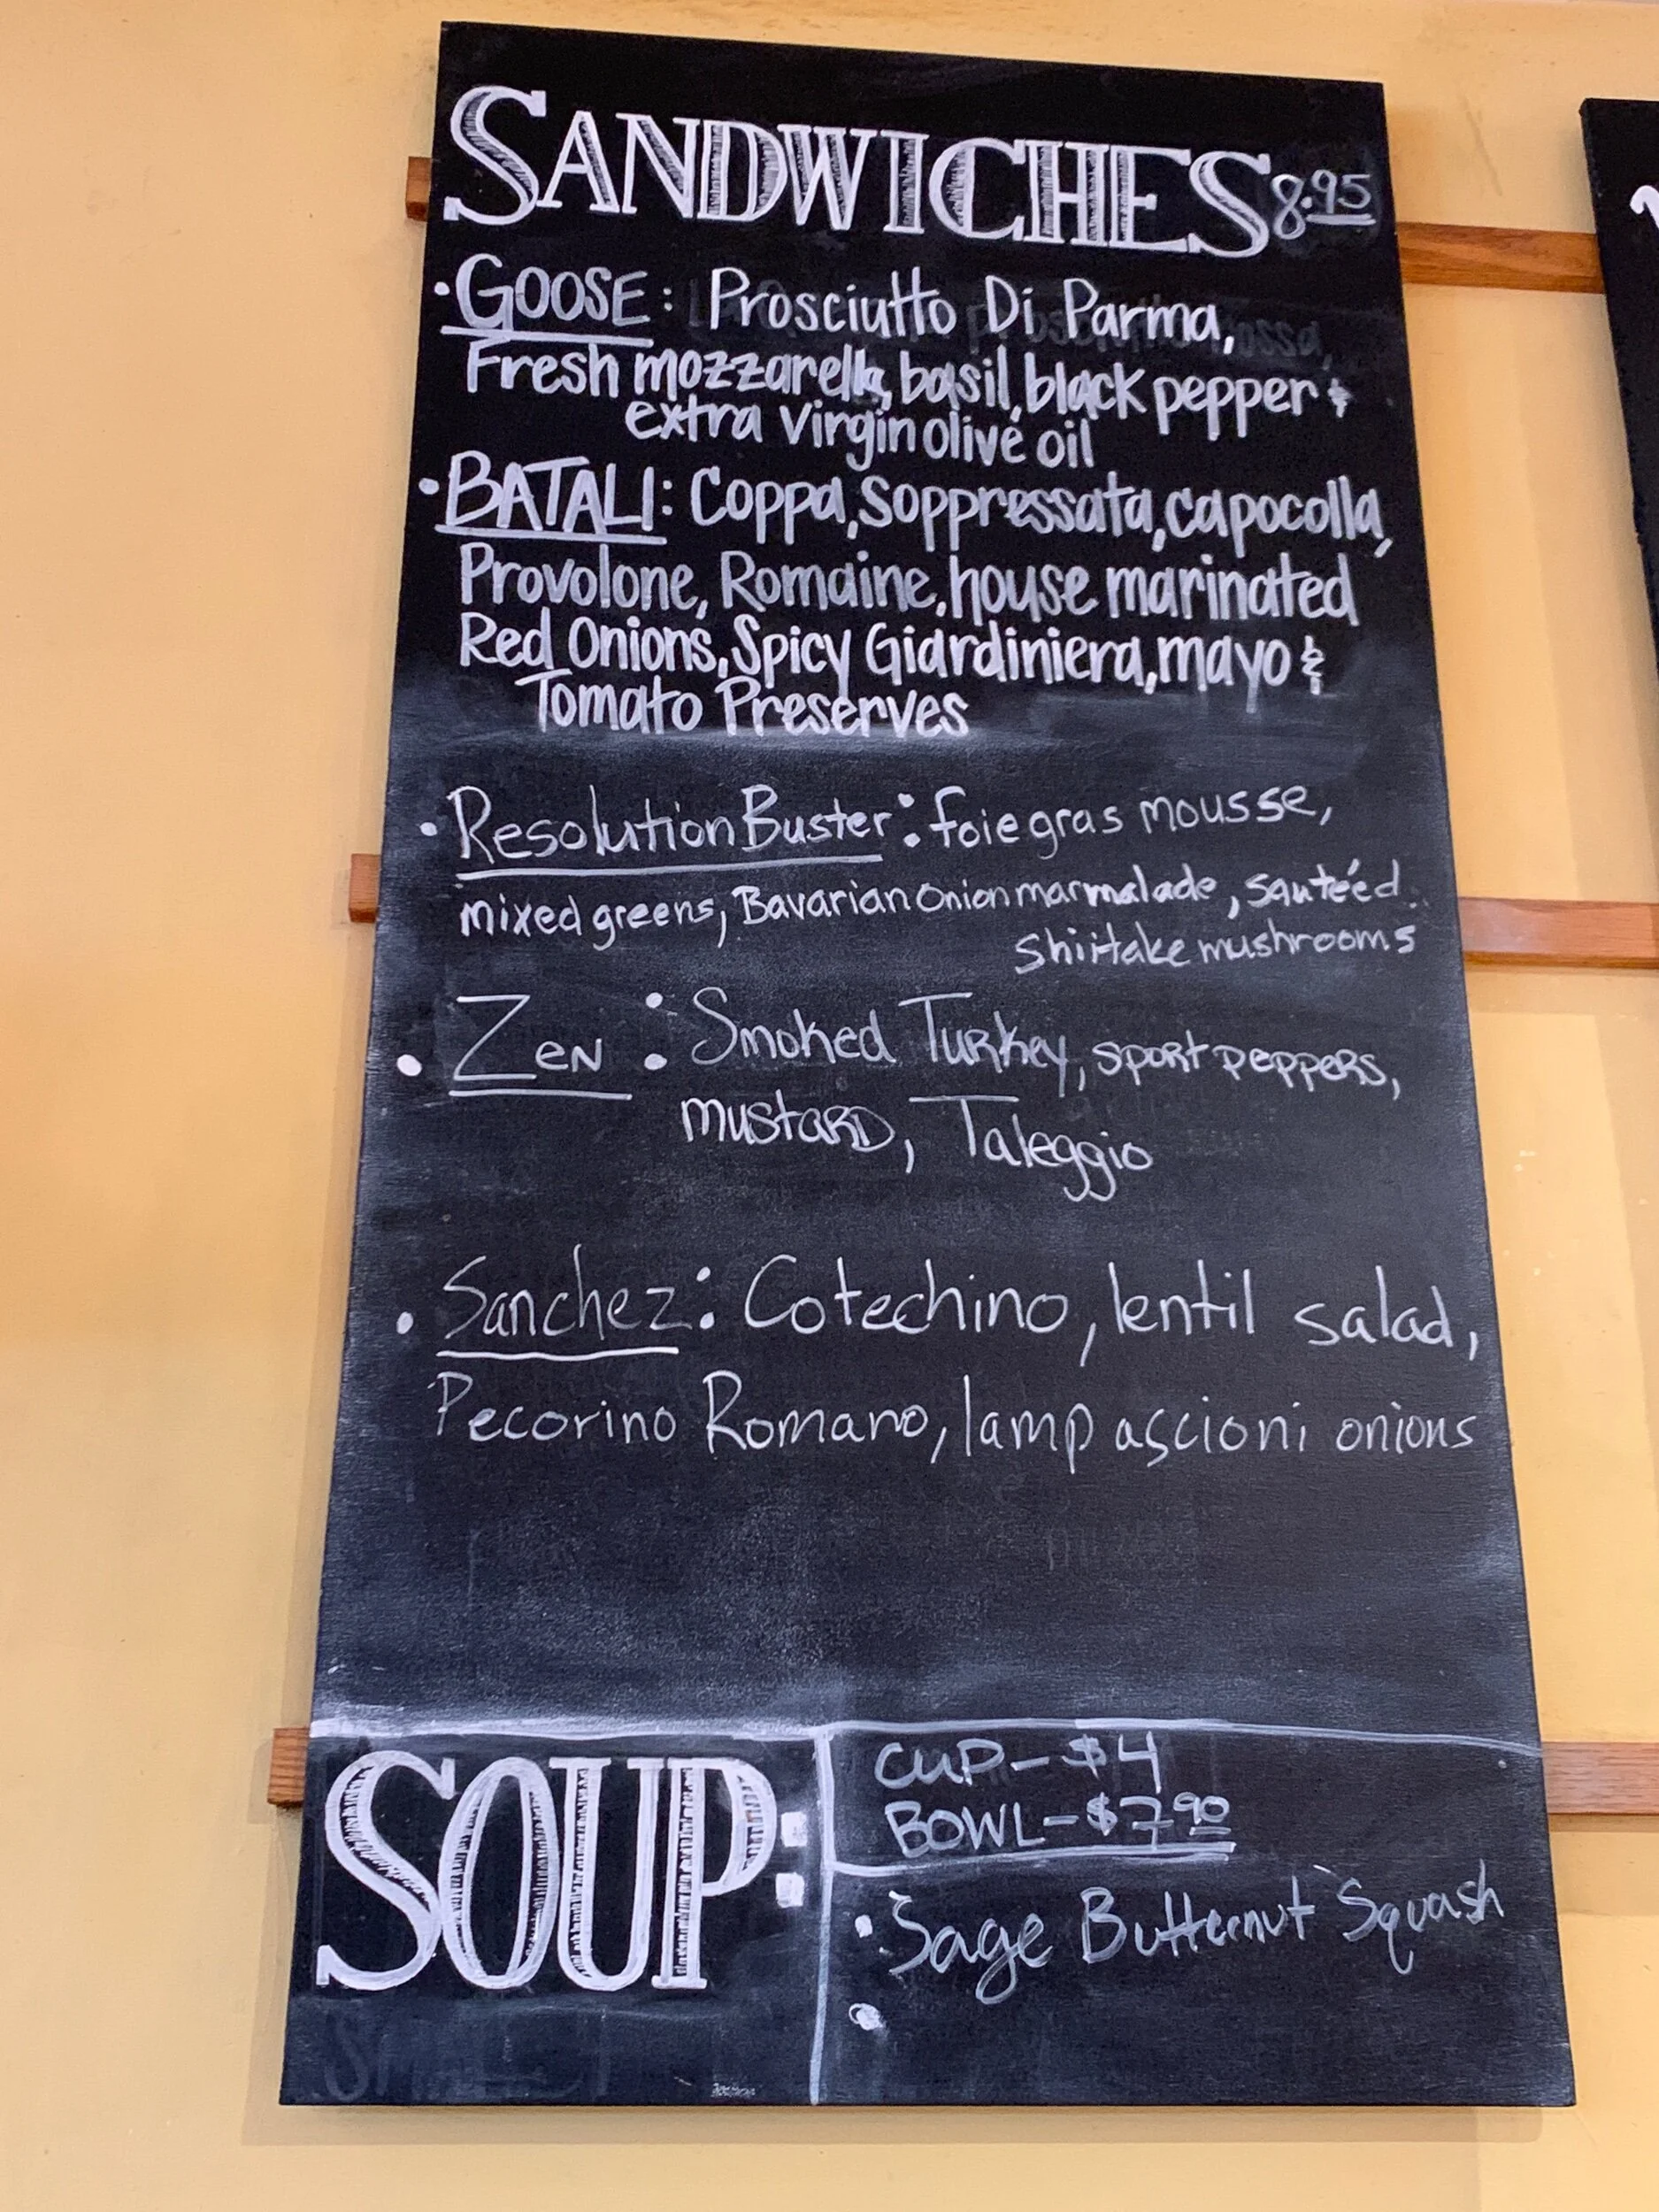 SANDWICHES 8.95
• GOOSE: Prosciutto Di Parma,
Fresh mozzarella, basil, black pepper &
extra virgin olive oil
• BATALI: Coppa, Soppressata, capocolla,
Provolone, Romaine, house marinated
Red Onions, Spicy Giardiniera, mayo &
Tomato Preserves
• Resolution Buster: foie gras mousse,
mixed greens, Bavarian Onion marmalade, sautéed
shiitake mushrooms
• Zen: Smoked Turkey, sport peppers,
mustard, Taleggio
• Sanchez: Cotechino, lentil salad,
Pecorino Romano, lampascioni onions
SOUP:
CUP - $4
BOWL - $7.90
• Sage Butternut Squash
•